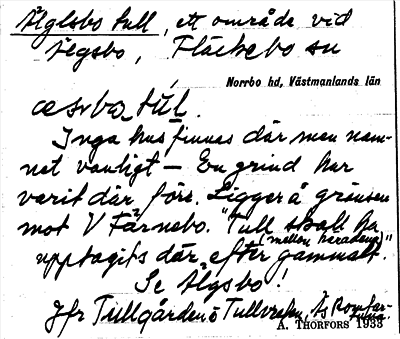 Älgsbo tull, ett område vid
Älgsbo, Fläckebo sn
Norrbo hd, Västmanlands län
æsbo túl.
Inga hus finnas där men nam-
net vanligt – En grind har
varit där förr. Ligger å gränsen
mot V Färnebo. "Tull skall ha
(mellan häraderna)
upptagits där efter gammalt."
Se Älgsbo!
Jfr Tullgården o Tullvreten, Ås Romfar-
tuna.
A. THORFORS 1933